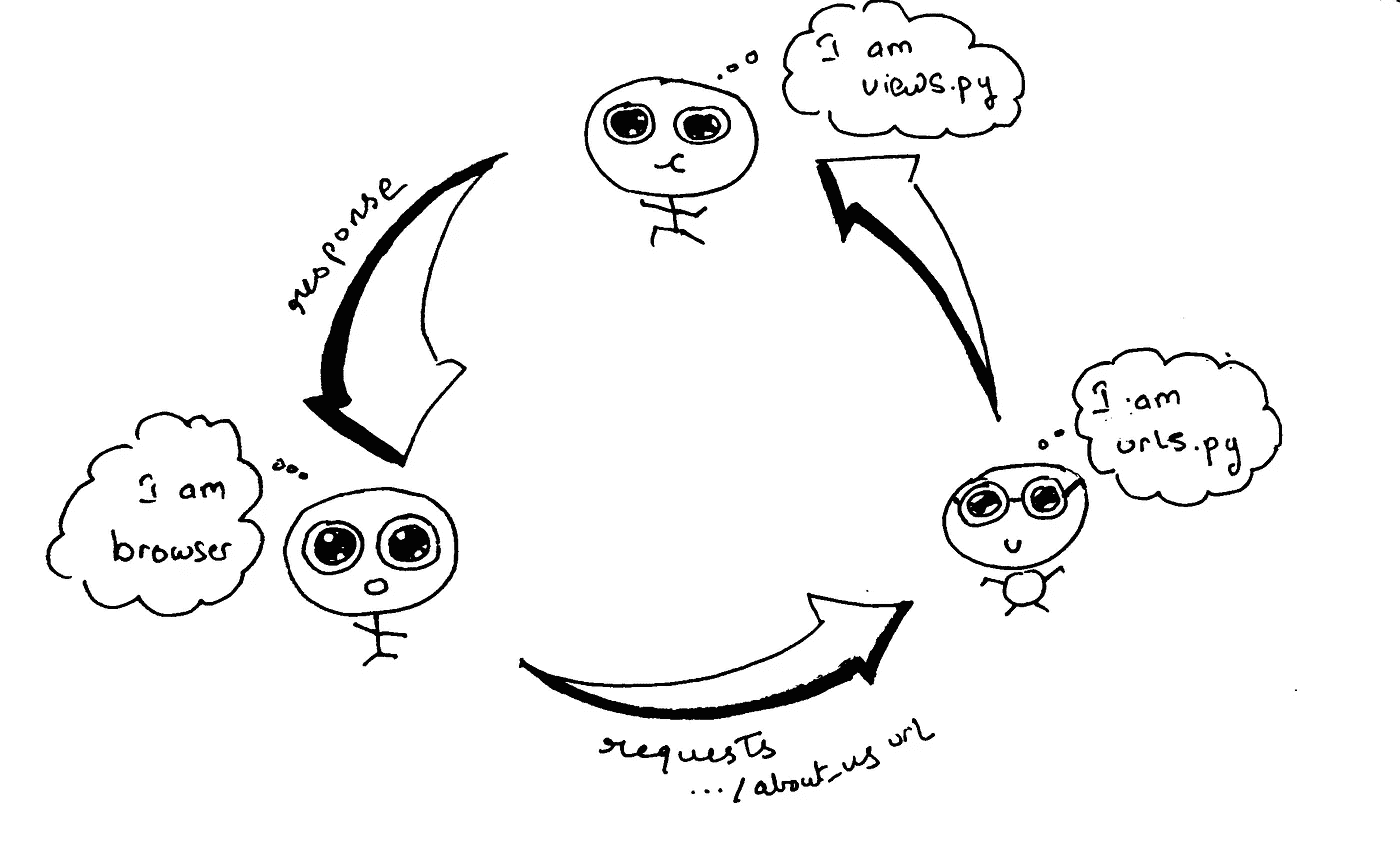 I am
views.py
response
I am
urls.py
I am
browser
requests
.../about_us url